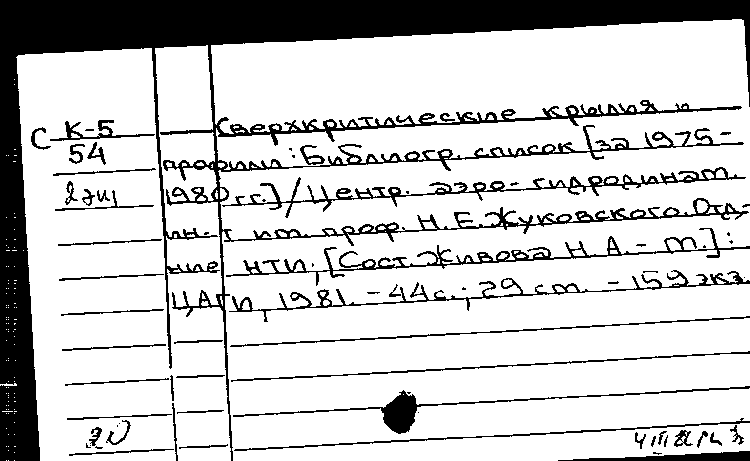 С К-5 Сверхкритические крылья и
54 профили: Библиогр. список [за 1975-
2 экз 1980 гг.] / Центр. аэро-гидродинам.
ин-т им. проф. Н.Е.Жуковского. Отд-
ние НТИ; [Сост. Живова Н.А. - М.]:
ЦАГИ, 1981. - 44 с.; 29 cm. - 159 экз.
20